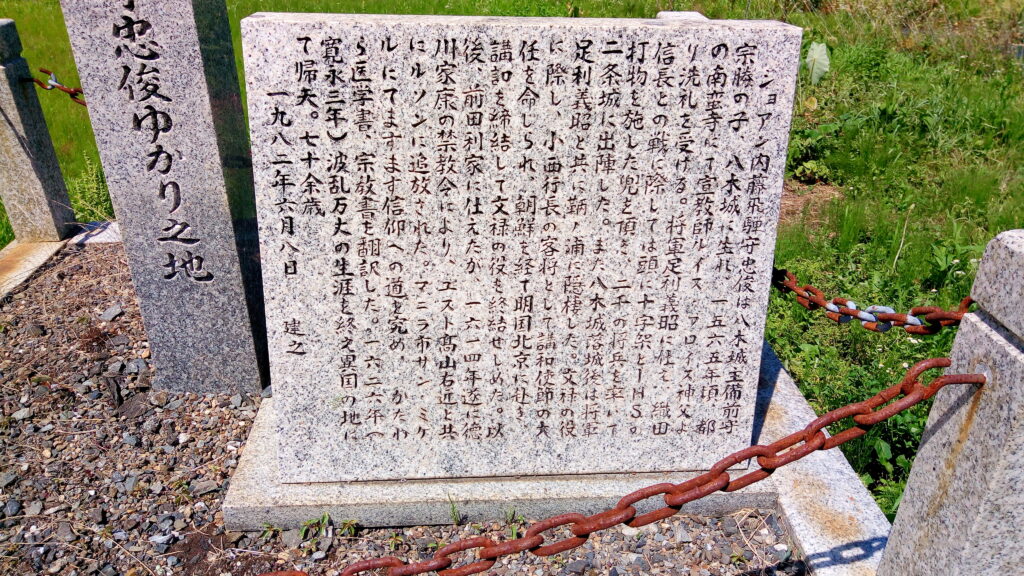 ジョアン内藤飛驒守忠俊は八木城主備前守
宗勝の子 八木城に生れ 一五六五年頃 都
の南蛮寺にて宣教師ルイス・フロイス神父よ
り洗礼を受ける。将軍足利義昭に仕え 織田
信長との戦に際しては頭に十字架とIHSの
打物を施した兜を頂き、二千の将兵を率いて
二条城に出陣した。また八木城落城後は将軍
足利義昭と共に鞆ノ浦に隠棲した。文禄の役
に際し、小西行長の客将として講和使節の大
任を命じられ、朝鮮を経て明国北京に赴き
講和を締結して文禄の役を終結せしめた。以
後 前田利家に仕えたが 一六一四年遂に徳
川家康の禁教令により、ユスト高山右近と共
にルソンに追放された。マニラ市サン・ミゲ
ルにてますます信仰への道を究め、かたわ
ら医学書、宗教書を翻訳した。一六二六年(
寛永三年)波乱万丈の生涯を終え異国の地に
て帰天。七十余歳
一九八二年六月八日 建之
忠俊ゆかり之地